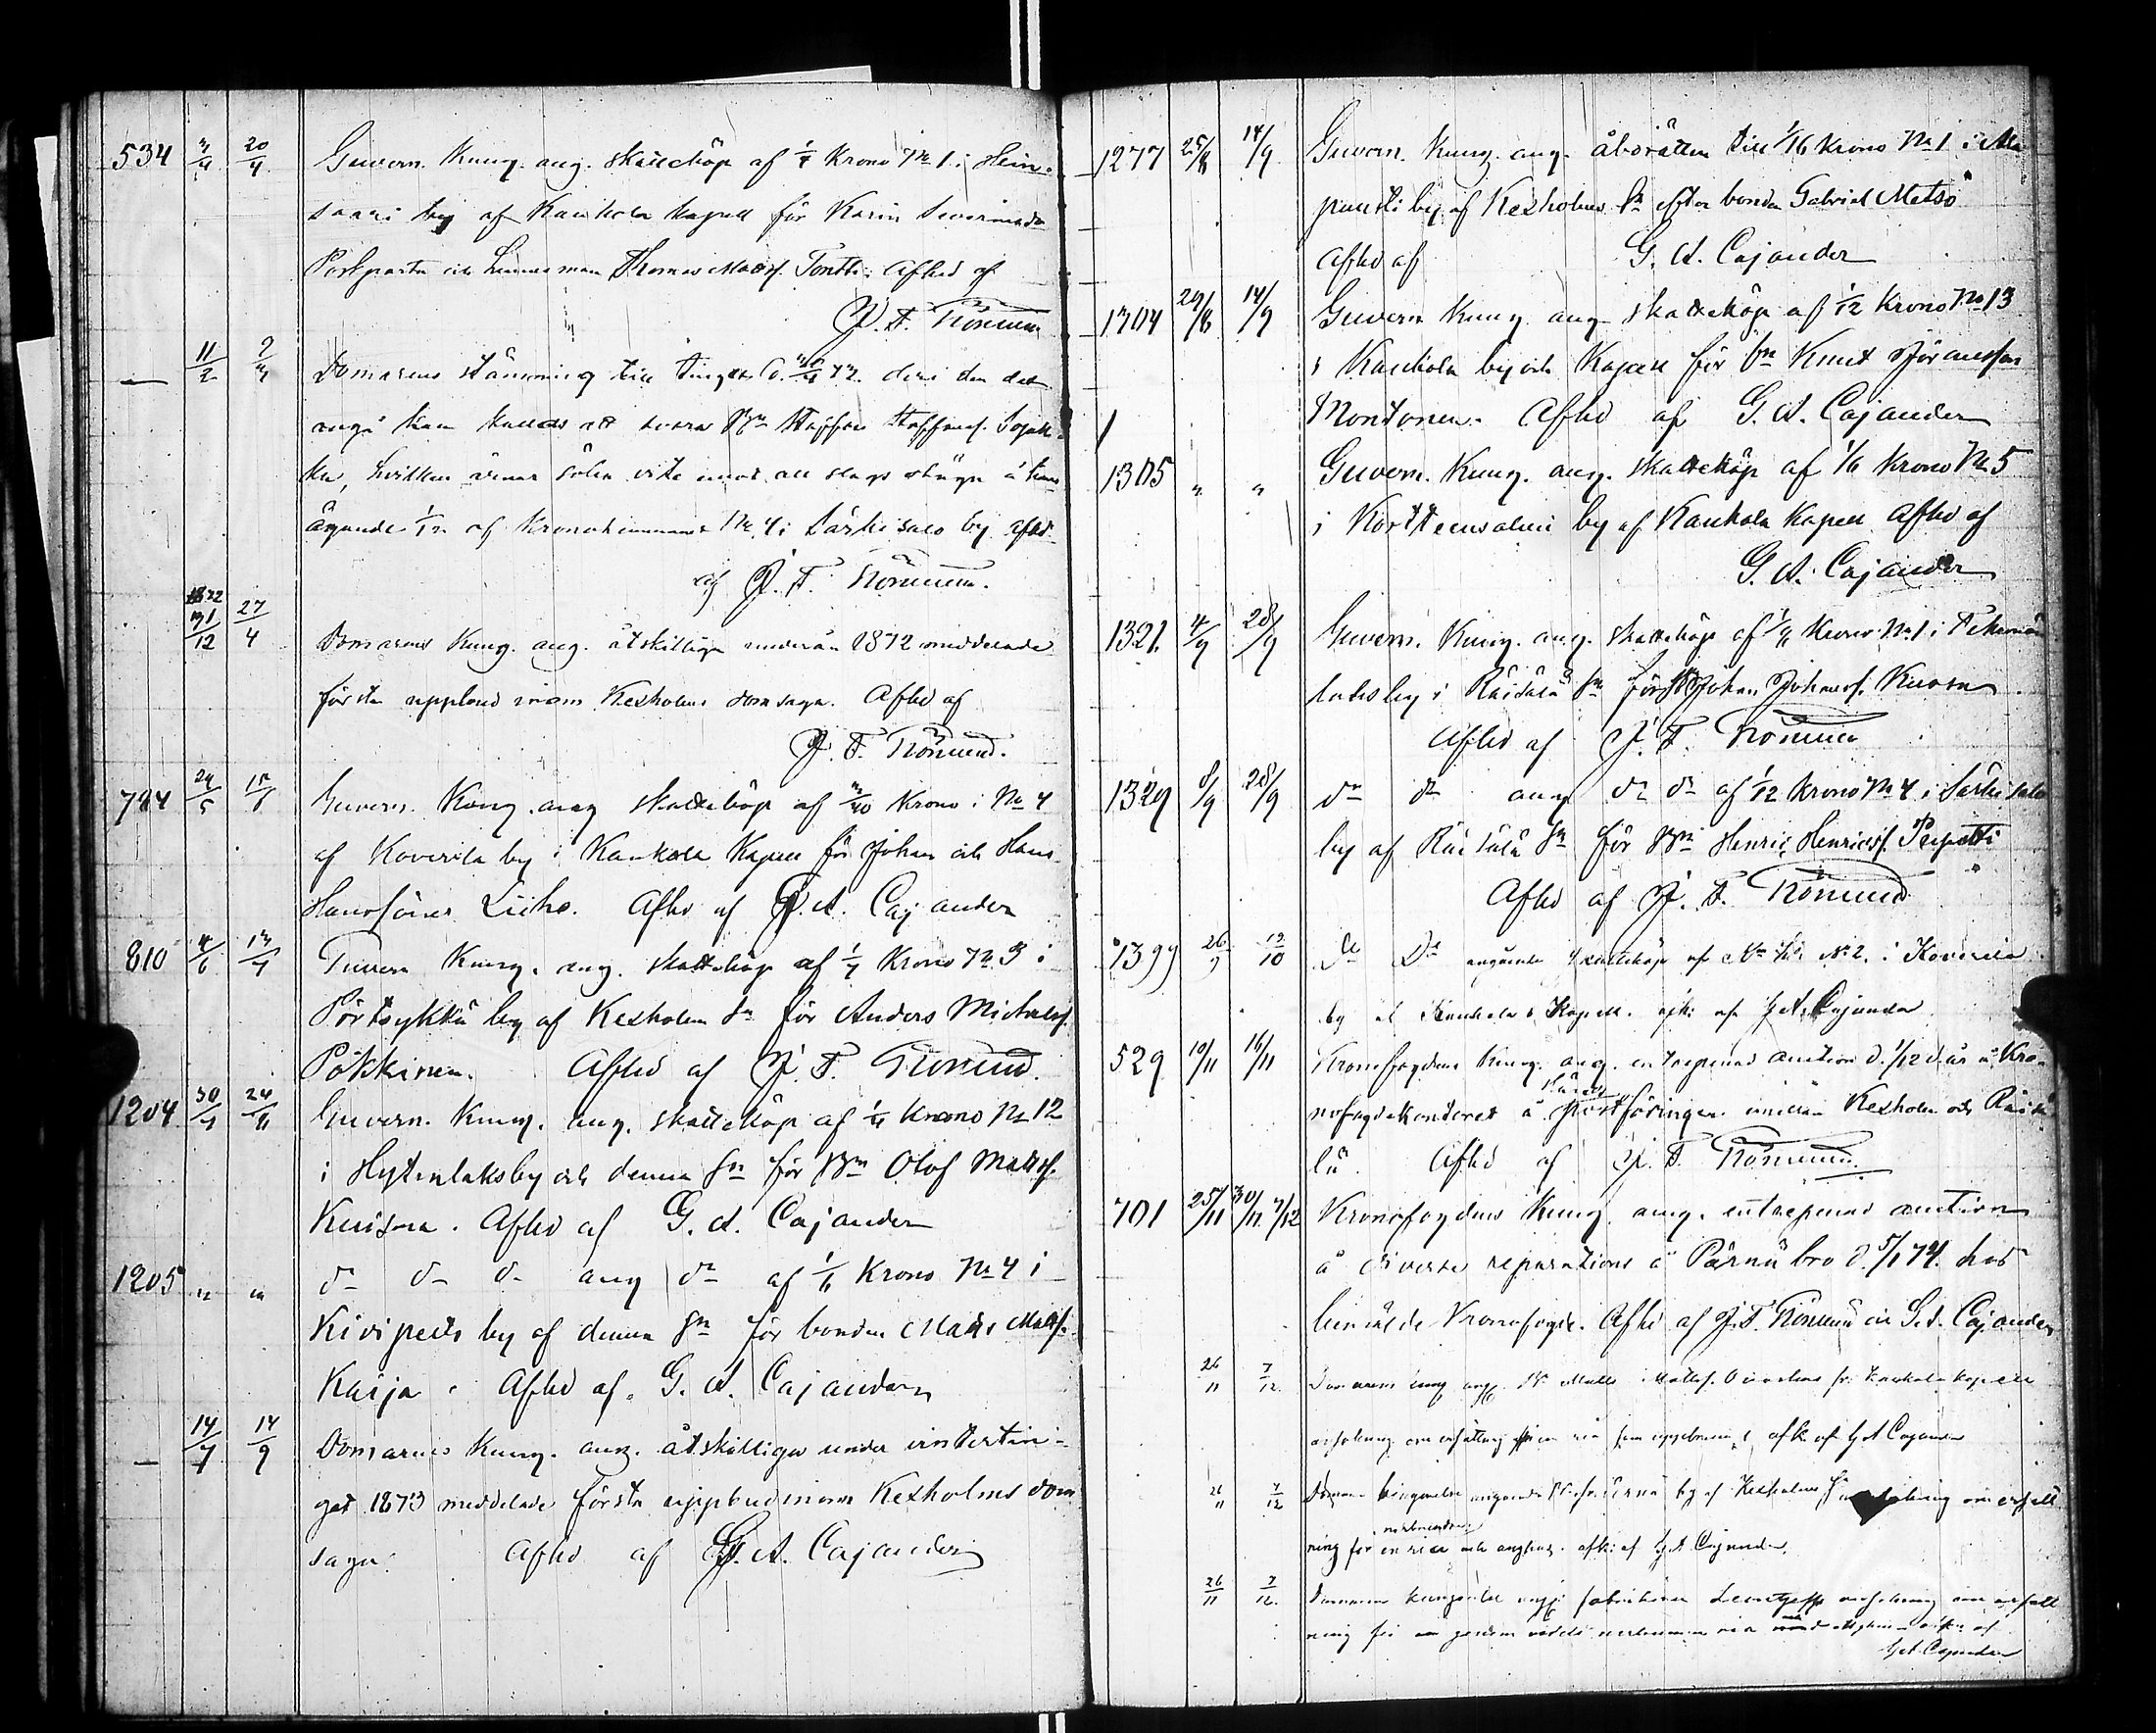 534 3/4 20/4 Guvern. Kung. ang. skatteköp af 1/4 Krono No 1 i Hein-
saari by af Kaukola kapell för Karin
och Länneman Thomas Matts. Tontti. Afhd af
J. F. Törnudd
— 11/2 Domarens stämning till tinget d. deri den det
angå kan kallas att svara Bn Staffan Staffans. Sojak-
ka, hvilken vite emot all slags åtkan
ägande 1/12 af Kronohemmanet No 4 i Särkisalo by afhd
af J. F. Törnudd.
1872 31/12 27/4 Domarens Kung. ang. åtskilliga under år 1872 meddelade
första uppbud inom Kexholms domsaga. Afhd af
J. F. Törnudd.
784 24/5 Guvern. Kung. ang skatteköp af Krono i No 4
af Koverila by i Kaukola Kapell för Johan och Hans
Hanssöner Liiho. Afhd af G. A. Cajander
810 4/6 13/7 Guvern Kung. ang. skatteköp af 1/4 Krono No 3 i
Pörtsykkä by af Kexholm Sn för Anders Michelss.
Pökkinen. Afhd af J. F. Törnudd.
1204 30/7 24/8 Guvern. Kung. ang. skatteköp af 1/4 Krono No 12
i Hytinlaks by och denna Sn för Bn Olof Mattss.
Kuisma. Afhd af G. A. Cajander
1205 " " do do do ang do af 1/6 Krono No 4 i
Kivipelto by af denna Sn för bonden Matts Mattss.
Kaija. Afhd af G. A. Cajander
— 14/7 14/9 Domarens Kung. ang. åtskilliga under vintertin-
get 1873 meddelade första uppbud inom Kexholms dom
saga. Afhd af G. A. Cajander
1277 25/8 14/9 Guvern. Kung. ang. åborätten till 1/16 Krono No 1 i
by af Kexholms Sn efter bonden Gabriel Metso
Afhd af G. A. Cajander
1304 29/8 14/9 Guvern Kung. ang skatteköp af 1/12 Krono No 13
i Kaukola by och Kapell för Bn Knut Göransson
Montonen. Afhd af G. A. Cajander
1305 " " Guvern. Kung. ang. skatteköp af 1/6 Krono No 5
i Kortteensalmi by af Kaukola Kapell Afhd af
G. A. Cajander
1321. 4/9 28/9 Guvern. Kung. ang. skatteköp af Krono No 1 i
laks by i Räisälä Sn för Johan Johanss. Kuosa
Afhd af J. F. Törnudd
1329 8/9 28/9 do do ang do do af 1/12 Krono No 4 i Särkisalo
by af Räisälä Sn för Bn Henric Henricss. Puputti
Afhd af J. F. Törnudd
1399 26/9 12/10 Do Do angående skatteköp af No 2. i Koverila
by af Kaukola Kapell. afk: af G A Cajander
529 10/11 16/11 Kronofogdens Kung. ang. entreprenad auction d. 1/12 d. år å Kro-
nofogdekontoret å postföringen imellan Kexholm och Räisä
lä. Afhd af J. F. Törnudd.
701 25/11 30/11 7/12 Kronofogdens Kung. ang. entreprenad auction
å diverse reparations å Pärnä bro d. 5/1 74. hos
bemälde Kronofogde. Afhd af J. F. Törnudd och G. A. Cajander
26/11 7/12 Domarens kung ang. Matts Mattss. Kaukola kapell
ansökning om ersättning för en ria afk. af G A Cajander
26/11 7/12 Domare kungörelse angående by af Kexholms Sn ansökning om ersätt
nedbrunnen
ning för en ria och afk: af G A Cajander.
26/11 7/12 Domarens kungörelse ang. ansökning om ersätt
ning för en genom nedbrunnen ria af
G A Cajander